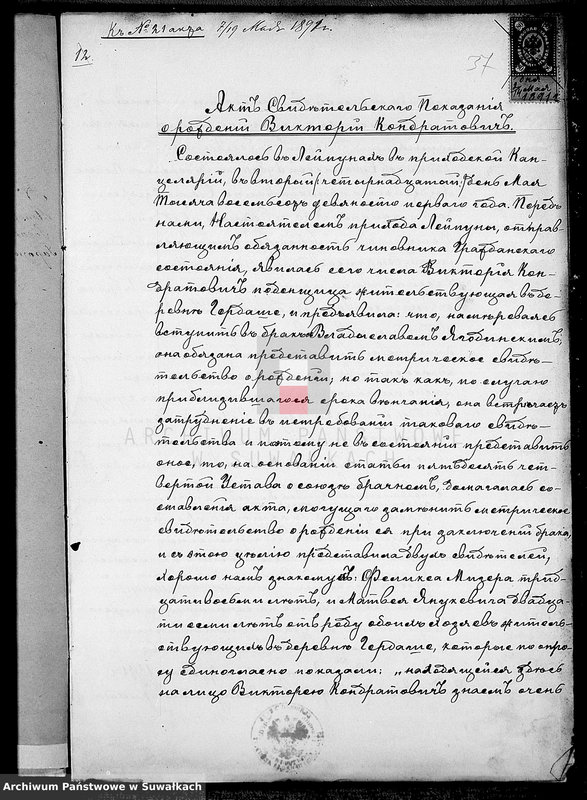 Къ № 21 акта 7/19 Мая 1891 г.
12
37
Актъ Свидѣтельскаго Показанія
о рожденіи Викторіи Кондратовичъ.
Состоялось въ Лейпунахъ въ приходской Кан-
целяріи, въ второй (четырнадцатый) день Мая
Тысяча восемьсотъ девяносто перваго года. Передъ
нами, Настоятелемъ прихода Лейпуны, отправ-
ляющимъ обязанность чиновника Гражданскаго
состоянія, явилась сего числа Викторія Кон-
дратовичъ поденщица жительствующая въ де-
ревнѣ Гердаше, и предъявила: что, намѣреваясь
вступить въ бракъ съ Владиславомъ Ягодинскимъ,
она обязана представить метрическое свидѣ-
тельство о рожденіи; но такъ какъ, по случаю
приблизившагося срока вѣнчанія, она встрѣчаетъ
затрудненіе въ истребованіи таковаго свидѣ-
тельства и потому не въ состояніи представить
оное, то, на основаніи статьи пятьдесятъ чет-
вертой Устава о союзѣ брачномъ, домагалась со-
ставленія акта, могущаго замѣнить метрическое
свидѣтельство о рожденіи ея при заключеніи брака,
и съ этою цѣлію представила двухъ свидѣтелей,
хорошо намъ знакомыхъ: Феликса Мизера трид-
цати восьми лѣтъ, и Матвея Янукевича двадца-
ти семи лѣтъ отъ роду обоихъ хозяевъ житель-
ствующихъ въ деревнѣ Гердаше, которые по опро-
су единогласно показали: „находящейся здѣсь
на лицо Викторію Кондратовичъ знаемъ очень
ARCHIWUM PAŃSTWOWE
W SUWAŁKACH
Archiwum Państwowe w Suwałkach